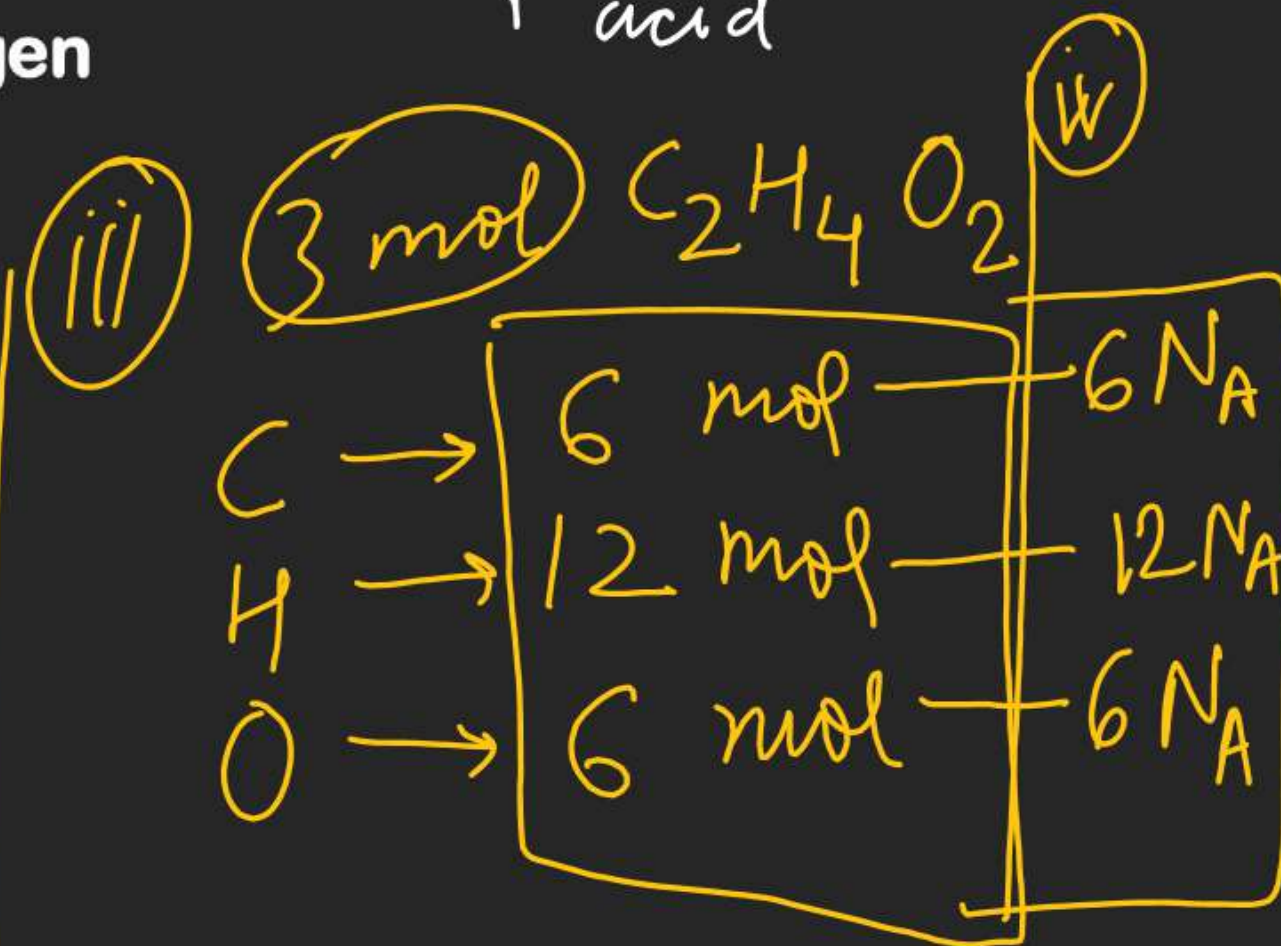 gen
acid
iii 3 mol C₂H₄O₂ iv
C → 6 mol — 6 N_A
H → 12 mol — 12 N_A
O → 6 mol — 6 N_A